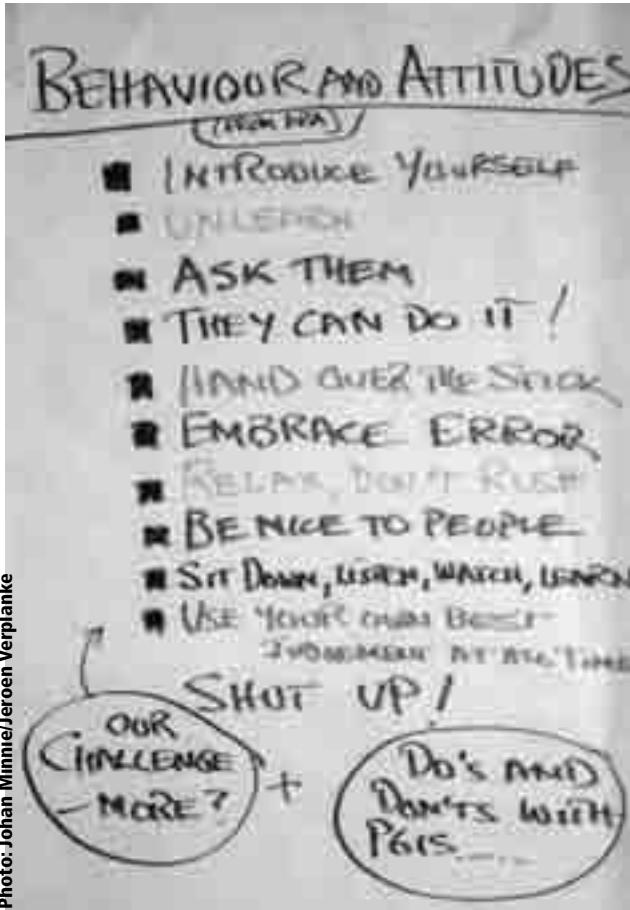 BEHAVIOUR AND ATTITUDES
(FROM PRA)
INTRODUCE YOURSELF
UNLEARN
ASK THEM
THEY CAN DO IT!
HAND OVER THE STICK
EMBRACE ERROR
RELAX, DON'T RUSH
BE NICE TO PEOPLE
SIT DOWN, LISTEN, WATCH, LEARN
USE YOUR OWN BEST
JUDGMENT AT ALL TIME
SHUT UP!
OUR
CHALLENGE
- MORE?
+
DO'S AND
DON'TS WITH
PGIS.....
Photo: Johan Minnie/Jeroen Verplanke